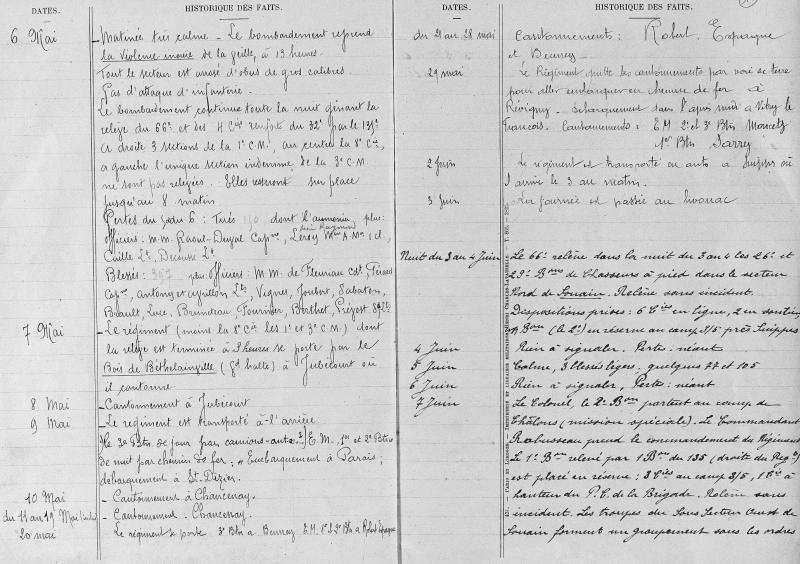 DATES.
HISTORIQUE DES FAITS.
6 Mai
Matinée très calme. Le bombardement reprend
la violence inouïe de la veille, à 13 heures.
Tout le secteur est arrosé d'obus de gros calibres.
Pas d'attaque d'infanterie.
Le bombardement continue toute la nuit gênant la
relève du 66e et des 4 Cies renforts du 32e par le 135e
A droite 3 sections de la 1e C.M., au centre la 8e Cie,
a gauche l'unique section indemne de la 3e C.M.
ne sont pas relevées. Elles resteront sur place
jusqu'au 8 matin
Pertes du 6: Tués 130 dont l'aumonier, plus
officiers: M.M. Raoul-Duval Capne, Leroy A.M. 1 cl.
Caille Lt, Ducasse Lt
Blessés: 397 officiers: M.M: de Fleurian Cdt,
Capne, Antony et Lts, Vignes, Joubert, Sabaton,
Brault, Luce, Bruneau, Fournier, Berthet, Prégost S/Lts
7 Mai
Le régiment (moins la 8e Cie les 1e et 3e C.M.) dont
la relève est terminée à 3 heures se porte par le
Bois de Béthelainville (gd halte) à Jubécourt où
il cantonne.
8 Mai
Cantonnement à Jubécourt
9 Mai
Le régiment est transporté à l'arrière.
le 3e Btn de jour par camions-autos; E.M., 1er et 2e Btns
de nuit par chemin de fer; Embarquement à Parois;
débarquement à St Dizier.
10 Mai
Cantonnement à Chancenay.
du 11 au 19 Mai
Cantonnement Chancenay.
20 mai
Le régiment se porte 3e Btn à Beurey E.M. 1er & 2e Btn à Robert Espagne
DATES.
HISTORIQUE DES FAITS.
du 21 au 28 mai
Cantonnements: Robert Espagne
et Beurey
29 mai
Le Régiment quitte les cantonnements par voie de terre
pour aller embarquer en chemin de fer à
Révigny. débarquement dans l'après midi à Vitry le
François. Cantonnements: EM 2e et 3e Btns Moncetz
1er Btn Sarry
2 Juin
Le régiment est transporté en auto à Suippes où
il arrive le 3 au matin.
3 Juin
La journée est passée au bivouac
Nuit du 3 au 4 Juin
Le 66e relève dans la nuit du 3 au 4 les 26e et
29e Bons de Chasseurs à pied dans le secteur
Nord de Souain. Relève sans incident.
Dispositions prises: 6 Cies en ligne, 2 en soutien,
1 Bon (le 2e) en réserve au camp 3/5 près Suippes
4 Juin
Rien à signaler. Perte: néant
5 Juin
Calme, 3 blessés légers; quelques 77 et 105
6 Juin
Rien à signaler, Perte: néant
7 Juin
Le Colonel, le 2e Bon partent au camp de
Châlons (mission spéciale). Le Commandant
Rabusseau prend le commandement du Régiment
Le 1e Bon relevé par 1 Bon du 135 (droite du Regt)
est placé en réserve: 3 Cies au camp 3/5, 1 Cie à
hauteur du P.C. de la Brigade. Relève sans
incident. Les troupes du Sous Secteur Ouest de
Souain forment un groupement sous les ordres